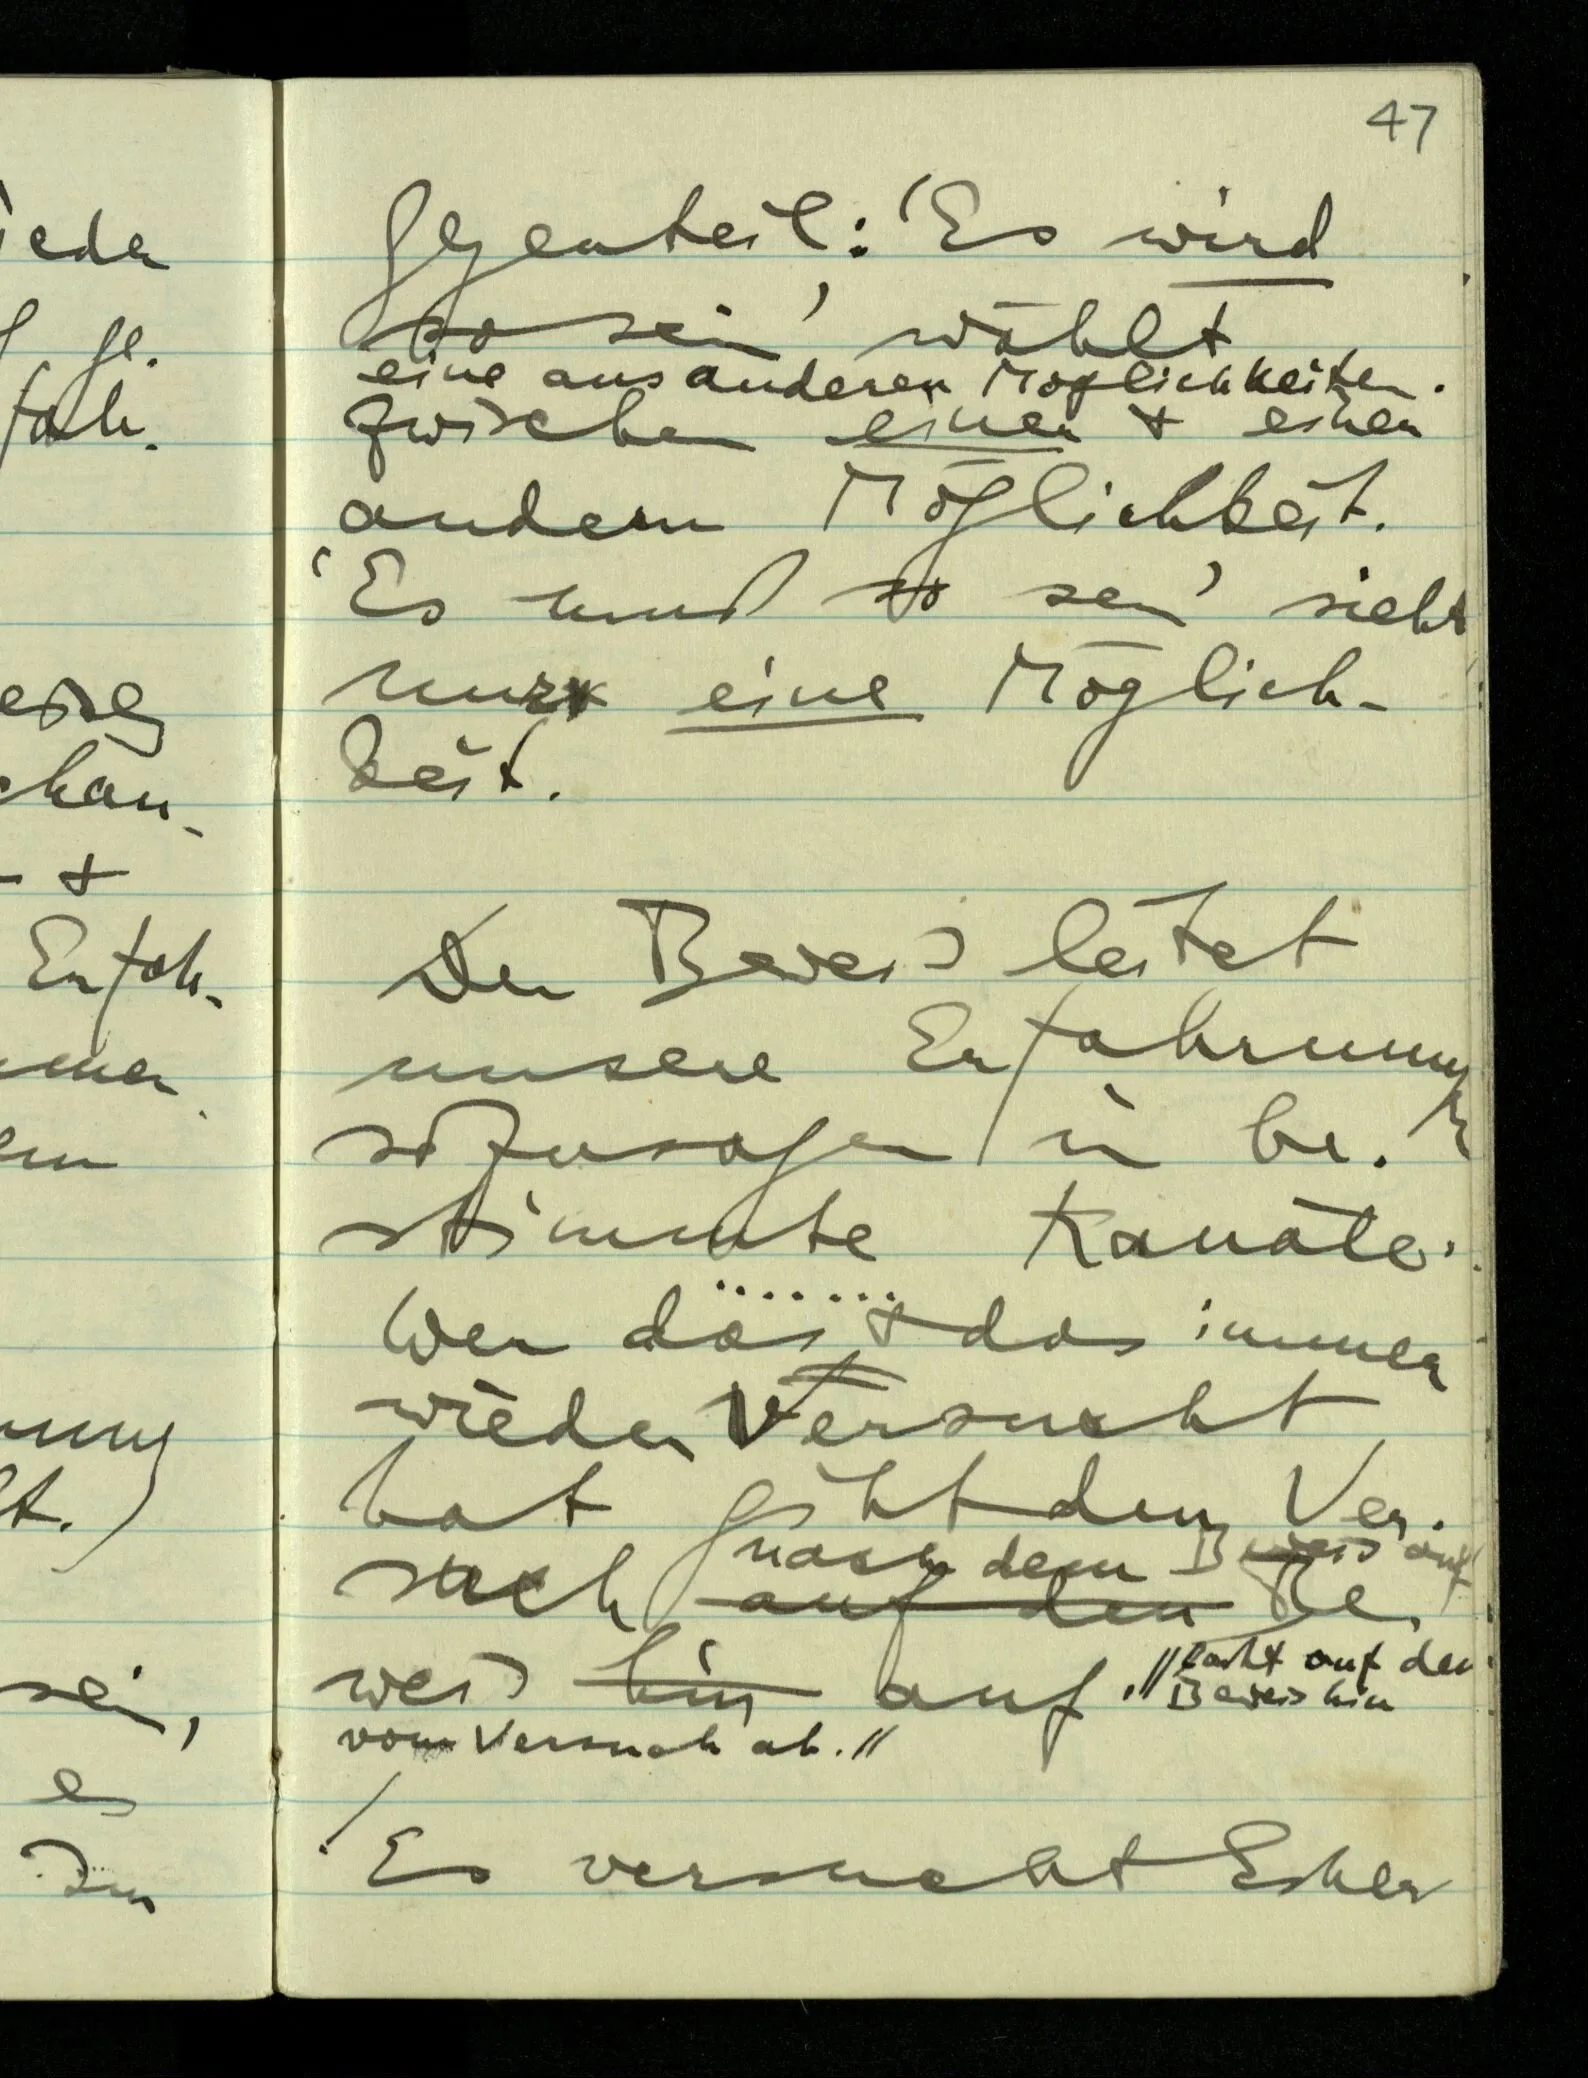 47
ieder
ge.
fah.
chau-
- +
Erfah-
sein,
es
Im
Gegenteil: 'Es wird
so sein' wählt
eine aus anderen Möglichkeiten.
zwischen einer + einer
andern Möglichkeit.
'Es muß so sein' sieht
nur eine Möglich-
keit.
Der Beweis leitet
unsere Erfahrungen
sozusagen in be-
stimmte Kanäle.
Wer das + das immer
wieder versucht
hat gibt den Ver-
nach dem Beweis auf
such auf den Be-
weis hin auf. // läßt auf den
Beweis hin
vom Versuch ab. //
/ Es versucht Einer